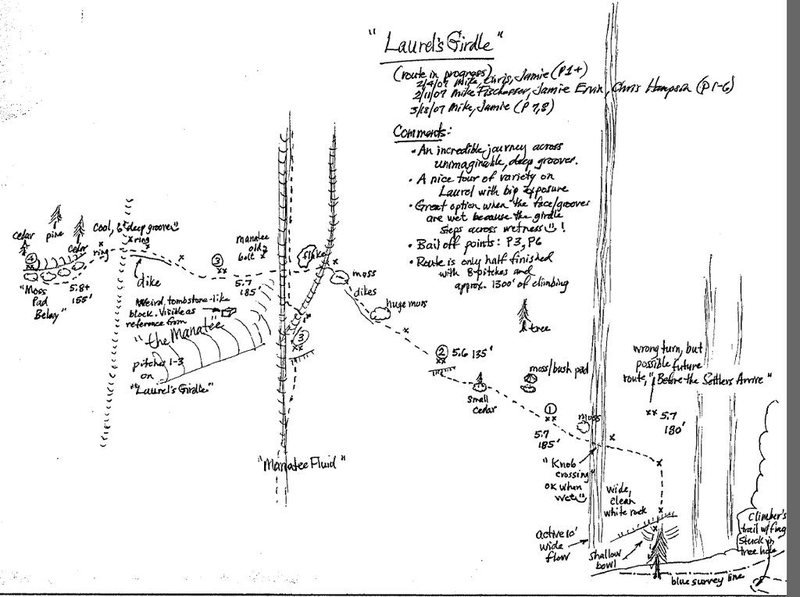 "Laurel's Girdle"
(route in progress)
2/4/07 Mike, Chris, Jamie (P1+)
2/11/07 Mike Fischesser, Jamie Ervin, Chris Hampson (P1-6)
3/18/07 Mike, Jamie (P 7,8)
Comments:
• An incredible journey across
unimaginable, deep grooves.
• A nice tour of variety on
Laurel with big exposure
• Great option when the face/grooves
are wet because the girdle
steps across wetness !
• Bail off points: P3, P6
• Route is only half finished
with 8-pitches and
approx. 1300' of climbing
cedar
pine
cedar
Cool, 6' deep groove
ring
ring
4
"Moss
Pad
Belay"
5.8+
155'
dike
3
5.7
185'
manatee
old
bolt
flake
moss
dikes
huge moss
Weird, tombstone-like
block. Visible as
reference from
"the Manatee"
3
pitches 1-3
on
"Laurel's Girdle"
"Manatee Fluid"
2
5.6 135'
small
cedar
tree
moss/bush pad
1
5.7
185'
moss
wrong turn, but
possible future
route, "Before the Settlers Arrive"
5.7
180'
"Knob
crossing"
OK when
wet
wide,
clean
white rock
active 10'
wide
flow
shallow
bowl
blue survey line
Climber's
trail w/flag
stuck in
tree hole